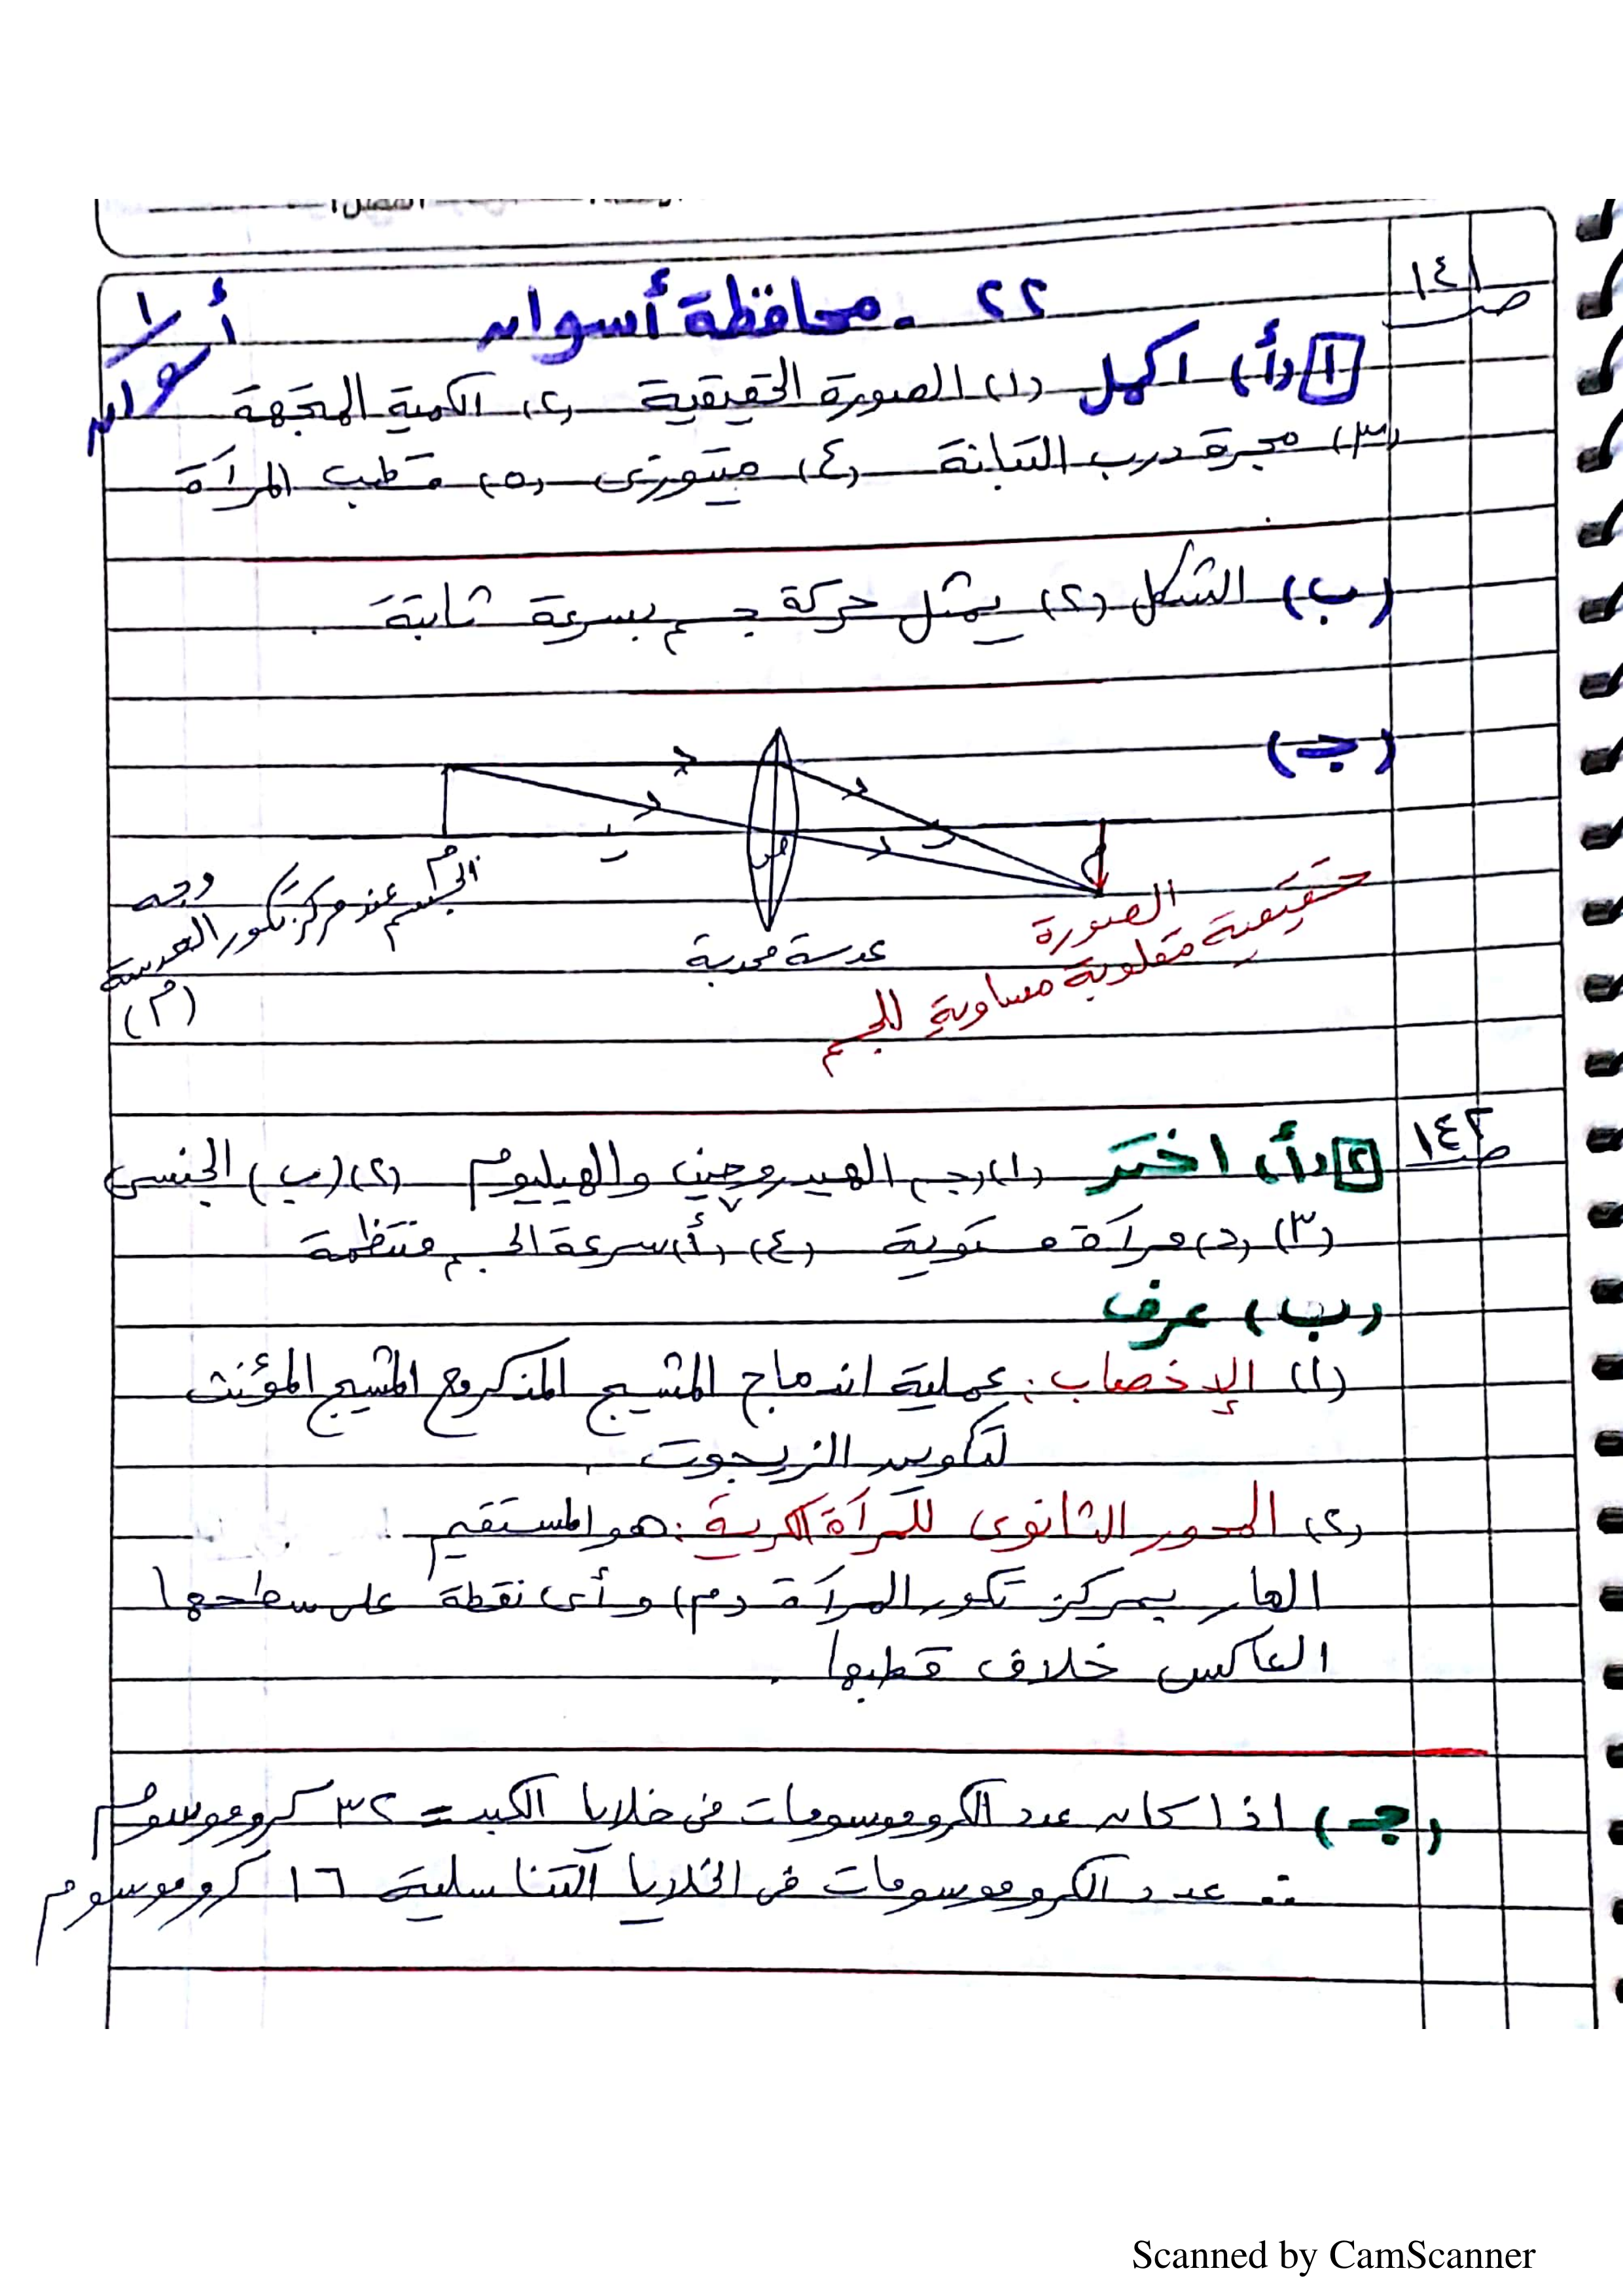 ص ١٤١
٢٢ - محافظة أسوان
أسوان
١ (أ) اكمل (١) الصورة الحقيقية (٢) الكمية المتجهة
(٣) مجرة درب التبانة (٤) ميتوزى (٥) قطب المرآة
(ب) الشكل (٢) يمثل حركة جسم بسرعة ثابتة.
(جـ)
الجسم عند مركز تكور
وجه العدسة
(م)
م
ب
عدسة محدبة
الصورة
حقيقية مقلوبة مساوية للجسم
ص ١٤٢
٢ (أ) اختر (١) (جـ) الهيدروجين والهيليوم (٢) (ب) الجنسى
(٣) (د) مرآة مستوية (٤) (أ) سرعة الجسم منتظمة
(ب) عرف
(١) الإخصاب: عملية اندماج المشيج المذكر مع المشيج المؤنث
لتكوين الزيجوت.
(٢) المحور الثانوى للمرآة الكرية: هو المستقيم
المار بمركز تكور المرآة (م) وأى نقطة على سطحها
العاكس خلاف قطبها.
(جـ) اذا كان عدد الكروموسومات فى خلايا الكبد = ٣٢ كروموسوم
∴ عدد الكروموسومات فى الخلايا التناسلية ١٦ كروموسوم
Scanned by CamScanner